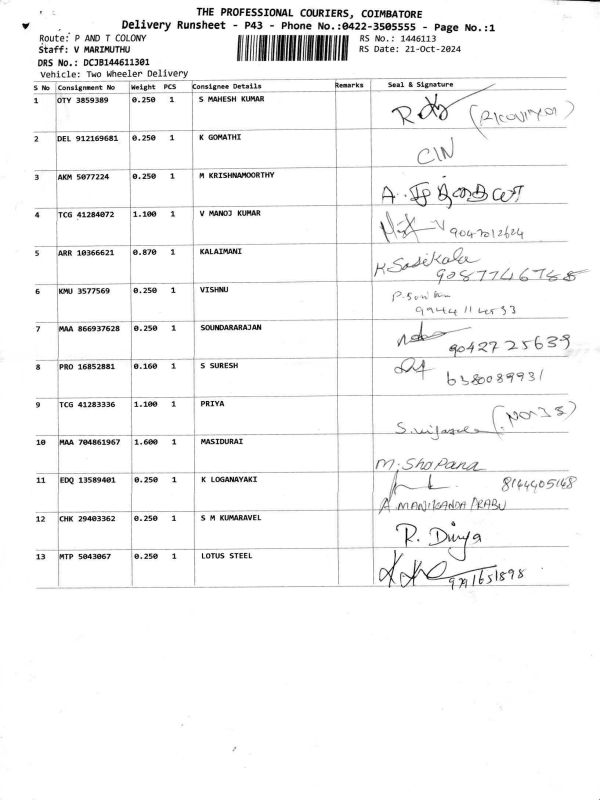 THE PROFESSIONAL COURIERS, COIMBATORE
Delivery Runsheet - P43 - Phone No.:0422-3505555 - Page No.:1
Route: P AND T COLONY RS No.: 1446113
Staff: V MARIMUTHU RS Date: 21-Oct-2024
DRS No.: DCJB144611301
Vehicle: Two Wheeler Delivery
S No Consignment No Weight PCS Consignee Details Remarks Seal & Signature
1 OTY 3859389 0.250 1 S MAHESH KUMAR
2 DEL 912169681 0.250 1 K GOMATHI CIN
3 AKM 5077224 0.250 1 M KRISHNAMOORTHY
4 TCG 41284072 1.100 1 V MANOJ KUMAR
5 ARR 10366621 0.870 1 KALAIMANI K Sasikala
6 KMU 3577569 0.250 1 VISHNU
7 MAA 866937628 0.250 1 SOUNDARARAJAN 9042725639
8 PRO 16852881 0.160 1 S SURESH 6380089931
9 TCG 41283336 1.100 1 PRIYA
10 MAA 704861967 1.600 1 MASIDURAI M. Shopana
11 EDQ 13589401 0.250 1 K LOGANAYAKI
A MANIKANDA PRABU
12 CHK 29403362 0.250 1 S M KUMARAVEL R. Divya
13 MTP 5043067 0.250 1 LOTUS STEEL